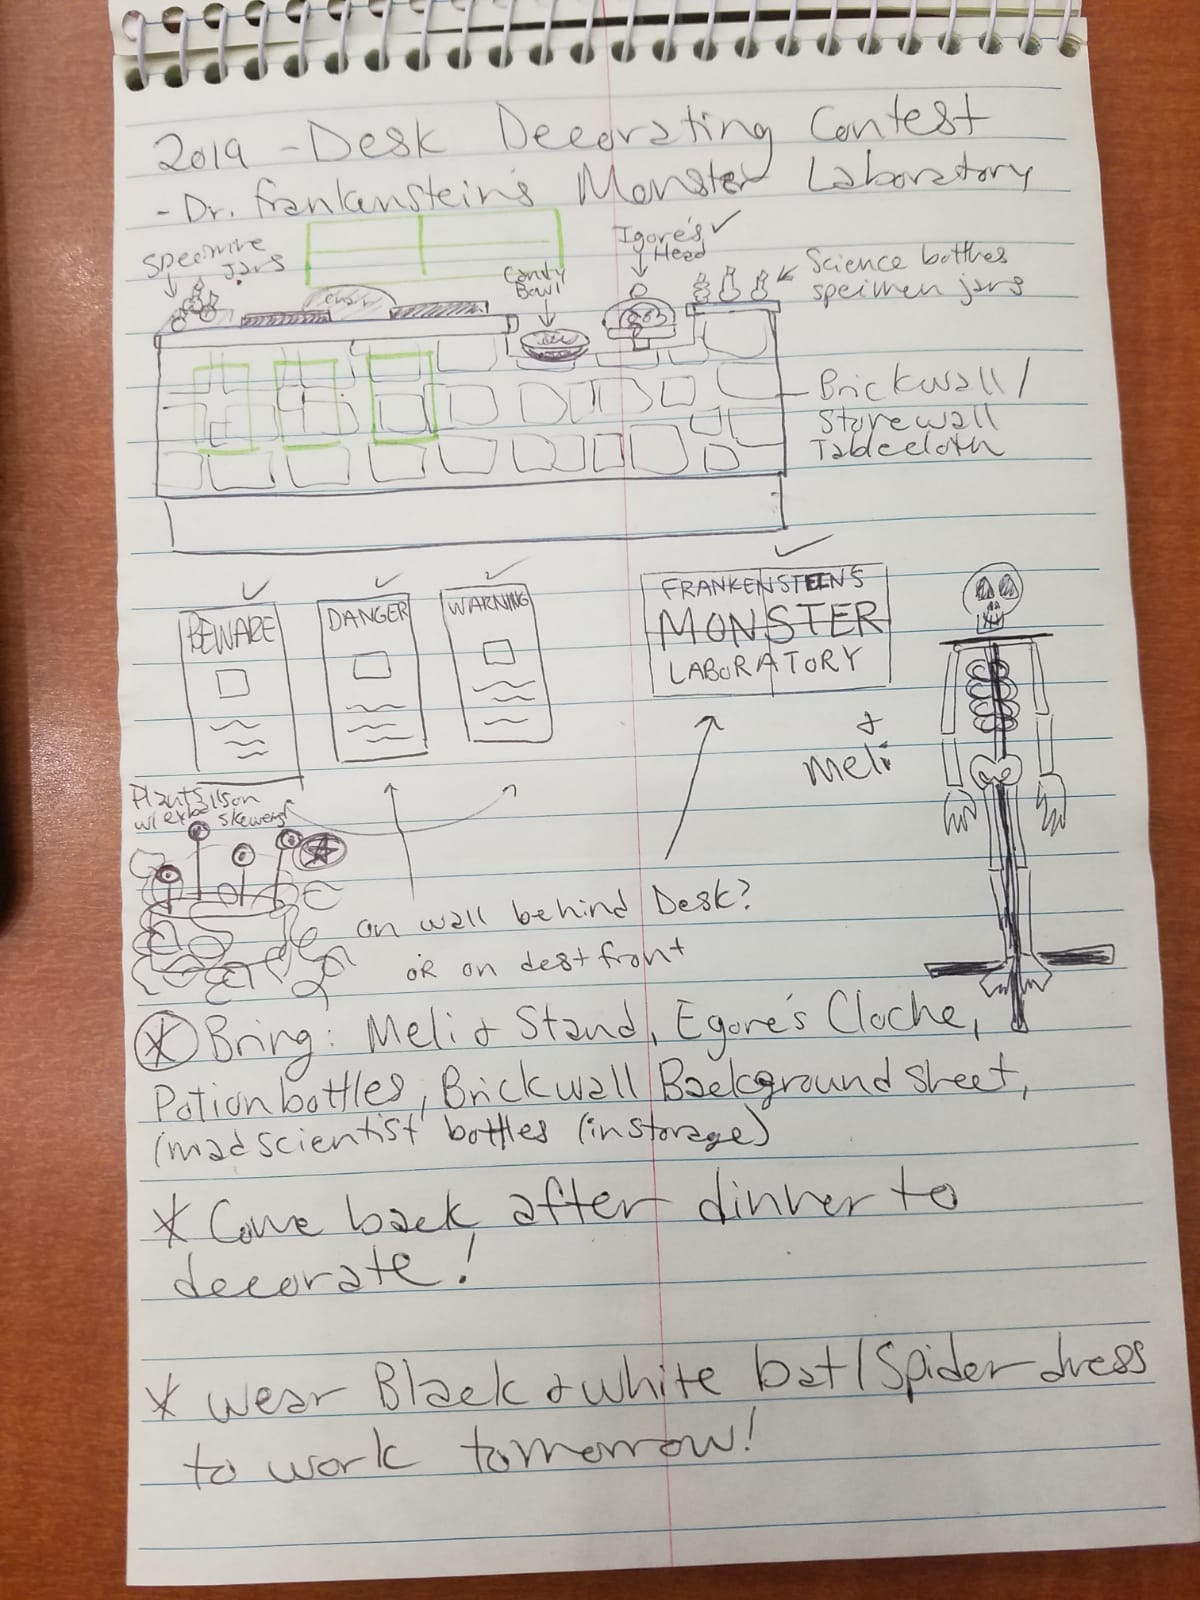 2019 - Desk Decorating Contest
- Dr. Frankenstein's Monster Laboratory
Specimine
Jars
Candy
Bowl
Igore's ✓
Head
Science bottles
specimen jars
Brickwall /
Stonewall
Tablecloth
✓
BEWARE
✓
DANGER
✓
WARNING
✓
FRANKENSTEIN'S
MONSTER
LABORATORY
&
Meli
Plants
w/
skewers
on wall behind Desk?
OR on desk front
* Bring: Meli & Stand, Egore's Cloche,
Potion bottles, Brickwall Background sheet,
(mad scientist bottles (in storage)
* Come back after dinner to
decorate!
* wear Black & white bat/Spider dress
to work tomorrow!